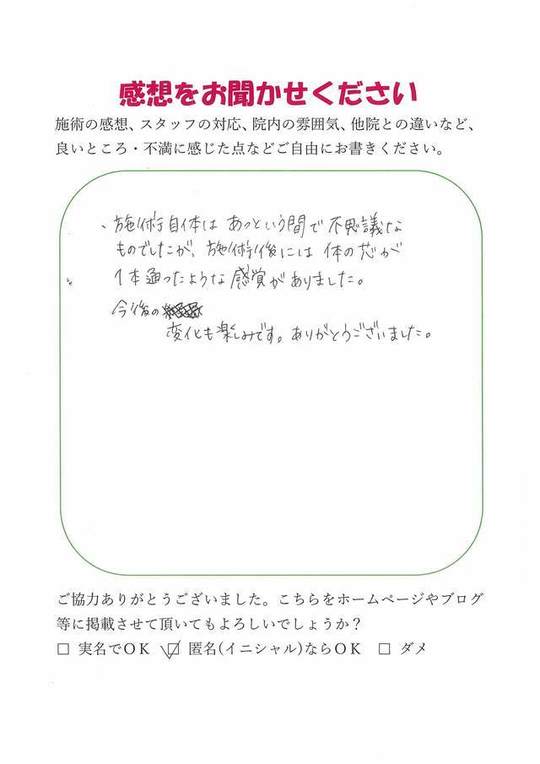 感想をお聞かせください
施術の感想、スタッフの対応、院内の雰囲気、他院との違いなど、
良いところ・不満に感じた点などご自由にお書きください。
、施術自体は あっという間で 不思議な
ものでしたが、施術後には 体の芯が
1本通ったような感覚がありました。
今後の
変化も楽しみです。ありがとうございました。
ご協力ありがとうございました。こちらをホームページやブログ
等に掲載させて頂いてもよろしいでしょうか？
□ 実名でOK ☑ 匿名(イニシャル)ならOK □ ダメ